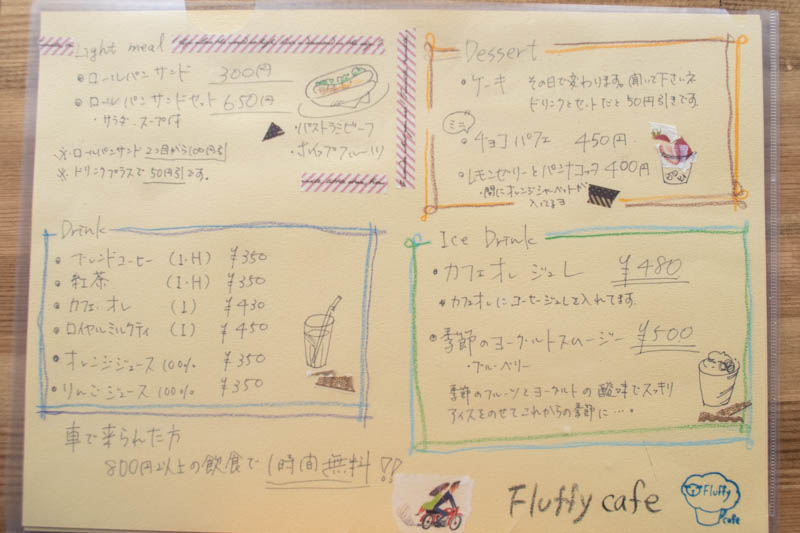 Light meal
・ロールパンサンド 300円
・ロールパンサンドセット 650円
・サラダ・スープ付
※ロールパンサンド2コ目から100円引
※ドリンクプラスで50円引です。
・パストラミビーフ
・ホイップフルーツ
Dessert
・ケーキ その日で変わります。聞いて下さいネ
ドリンクとセットだと50円引きです。
ミニ
・チョコパフェ 450円
・レモンゼリーとパンナコッタ 400円
・間にオレンジシャーベットが
入ってるヨ
Drink
・ブレンドコーヒー (I・H) ¥350
・紅茶 (I・H) ¥350
・カフェ・オレ (I) ¥430
・ロイヤルミルクティ (I) ¥450
・オレンジジュース 100% ¥350
・りんごジュース 100% ¥350
Ice Drink
・カフェオレジュレ ¥480
カフェオレにコーヒージュレを入れてます。
・季節のヨーグルトスムージー ¥500
・ブルーベリー
季節のフルーツとヨーグルトの酸味でスッキリ
アイスをのせてこれからの季節に・・・。
車で来られた方
800円以上の飲食で1時間無料!!
Fluffy cafe
Fluffy
cafe